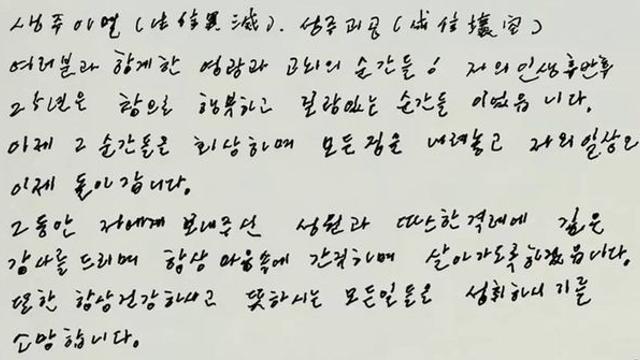 생주이멸(生住異滅). 성주괴공(成住壞空)
여러분과 함께한 영광과 고뇌의 순간들! 저의 인생후반부
25년은 참으로 행복하고 보람있는 순간들 이었읍니다.
이제 그 순간들을 회상하며 모든짐을 내려놓고 저의일상으
이제 돌아갑니다.
그동안 저에게 보내주신 성원과 따스한격려에 깊은
감사를 드리며 항상 마음속에 간직하며 살아가도록하겠읍니다.
또한 항상건강하시고 뜻하시는 모든일들을 성취하시기를
소망합니다.